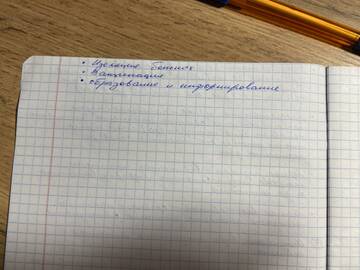 • Изоляция больных
• Вакцинация
• образование и информирование